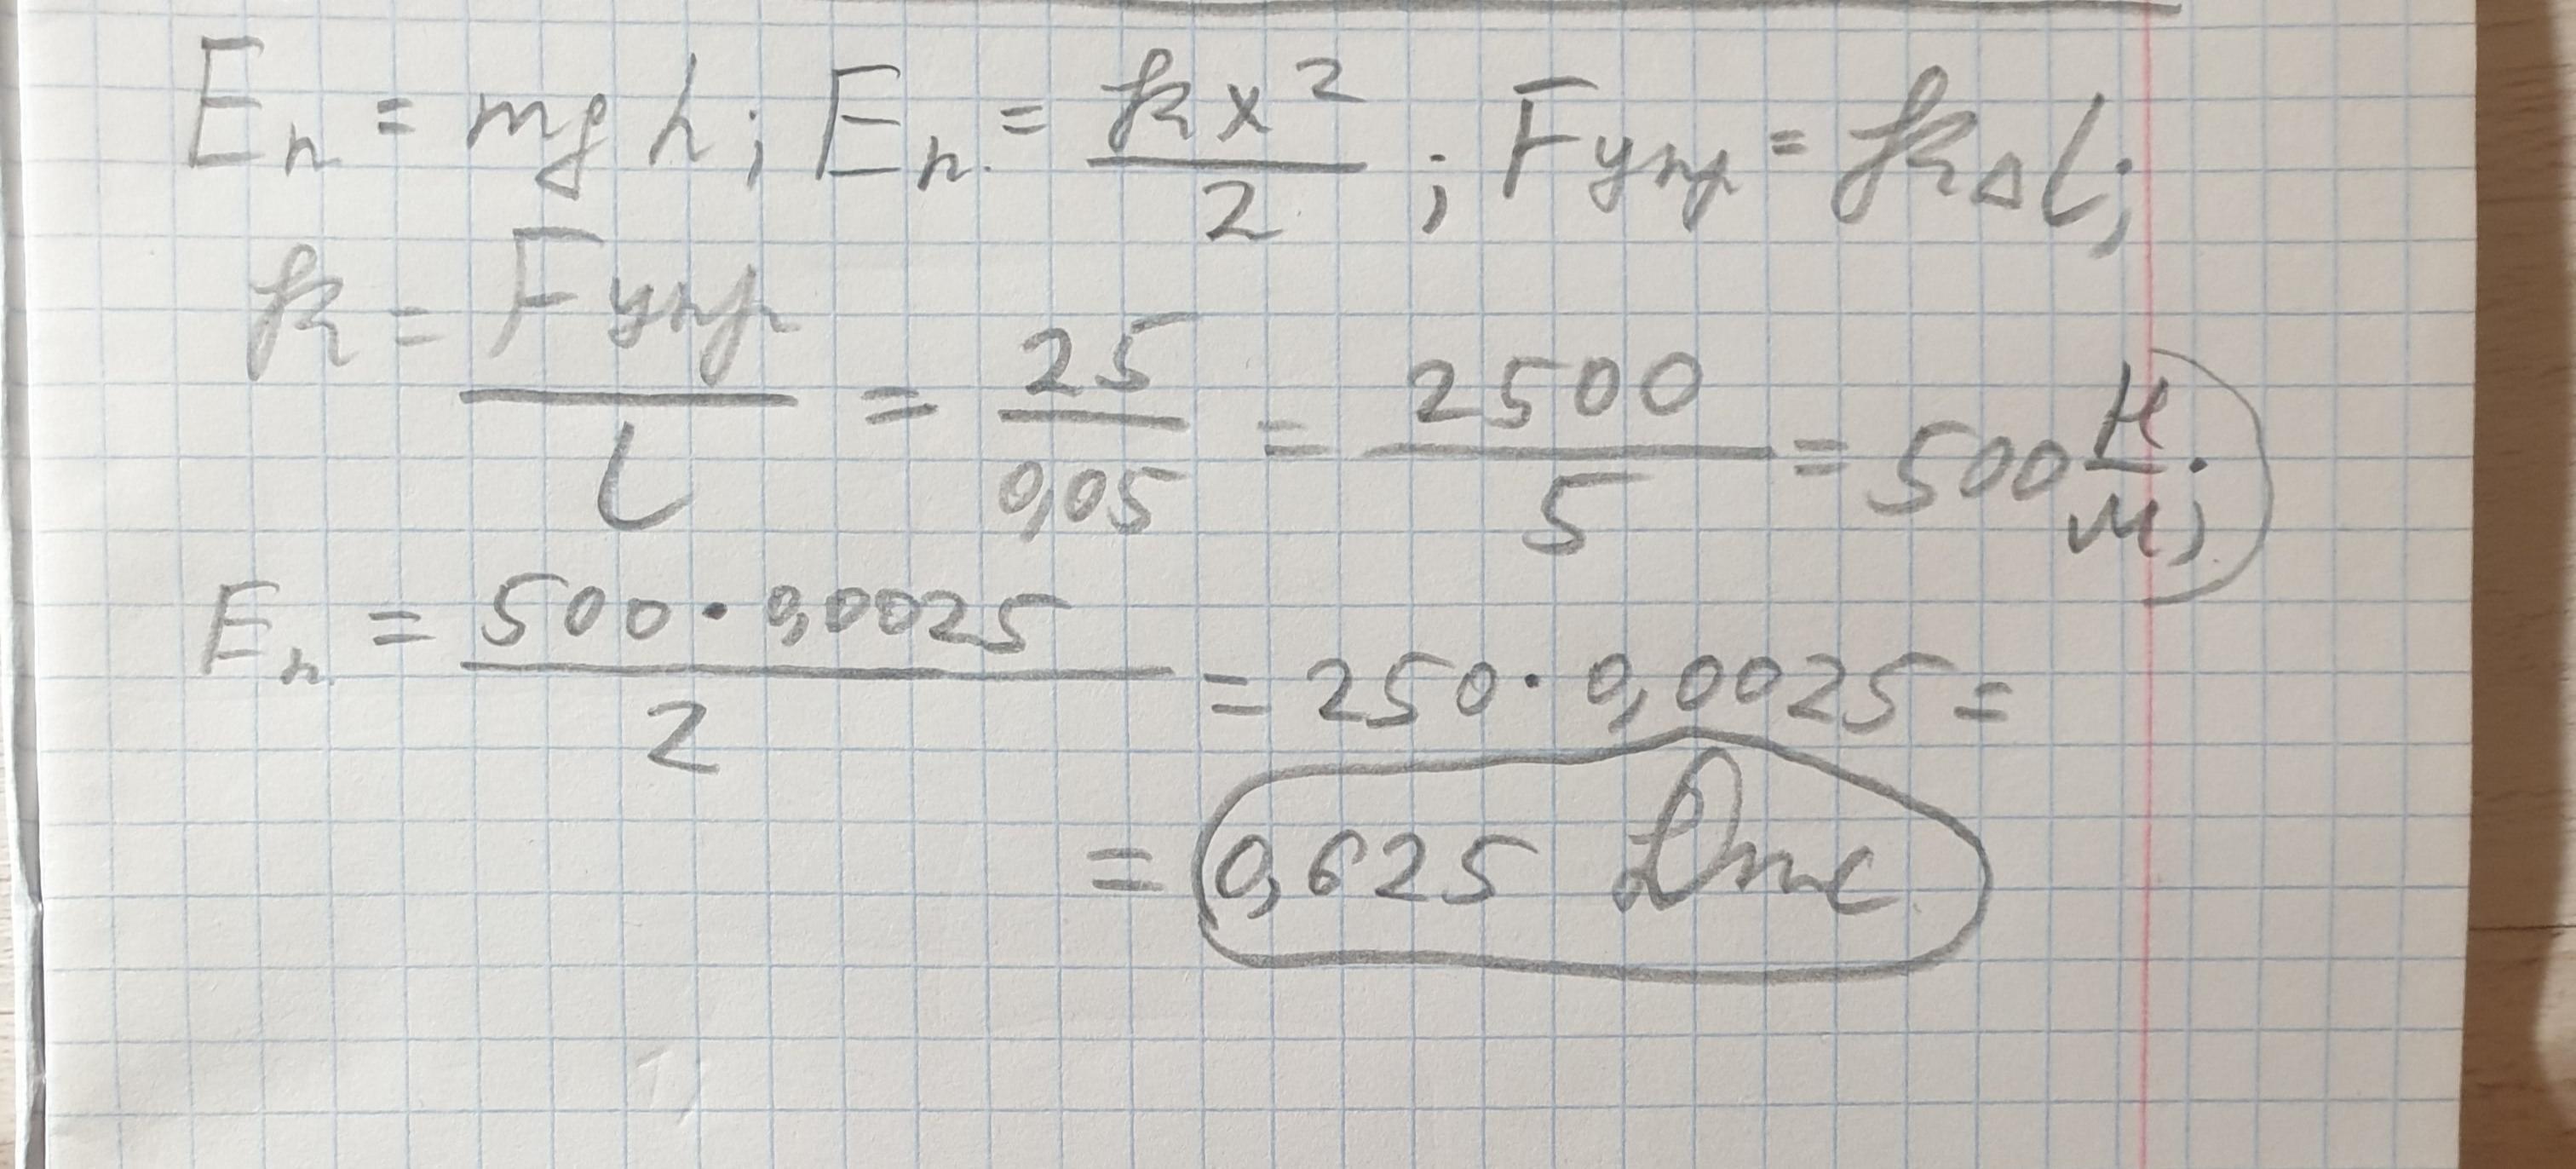 Eп = mgh; Eп. = kx²/2; Fупр = kΔl;
k = Fупр/l = 25/0,05 = 2500/5 = 500 Н/м;
Eп. = 500·0,0025/2 = 250·0,0025 =
= 0,625 Дж